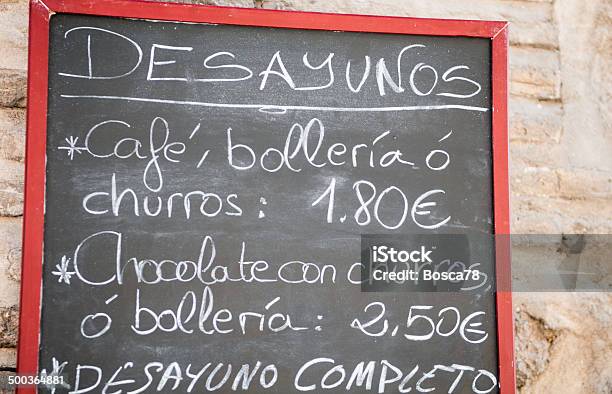 DESAYUNOS
*Café, bollería ó
churros: 1.80€
*Chocolate con churros,
ó bollería: 2,50€
*DESAYUNO COMPLETO
iStock
Credit: Bosca78
500364881